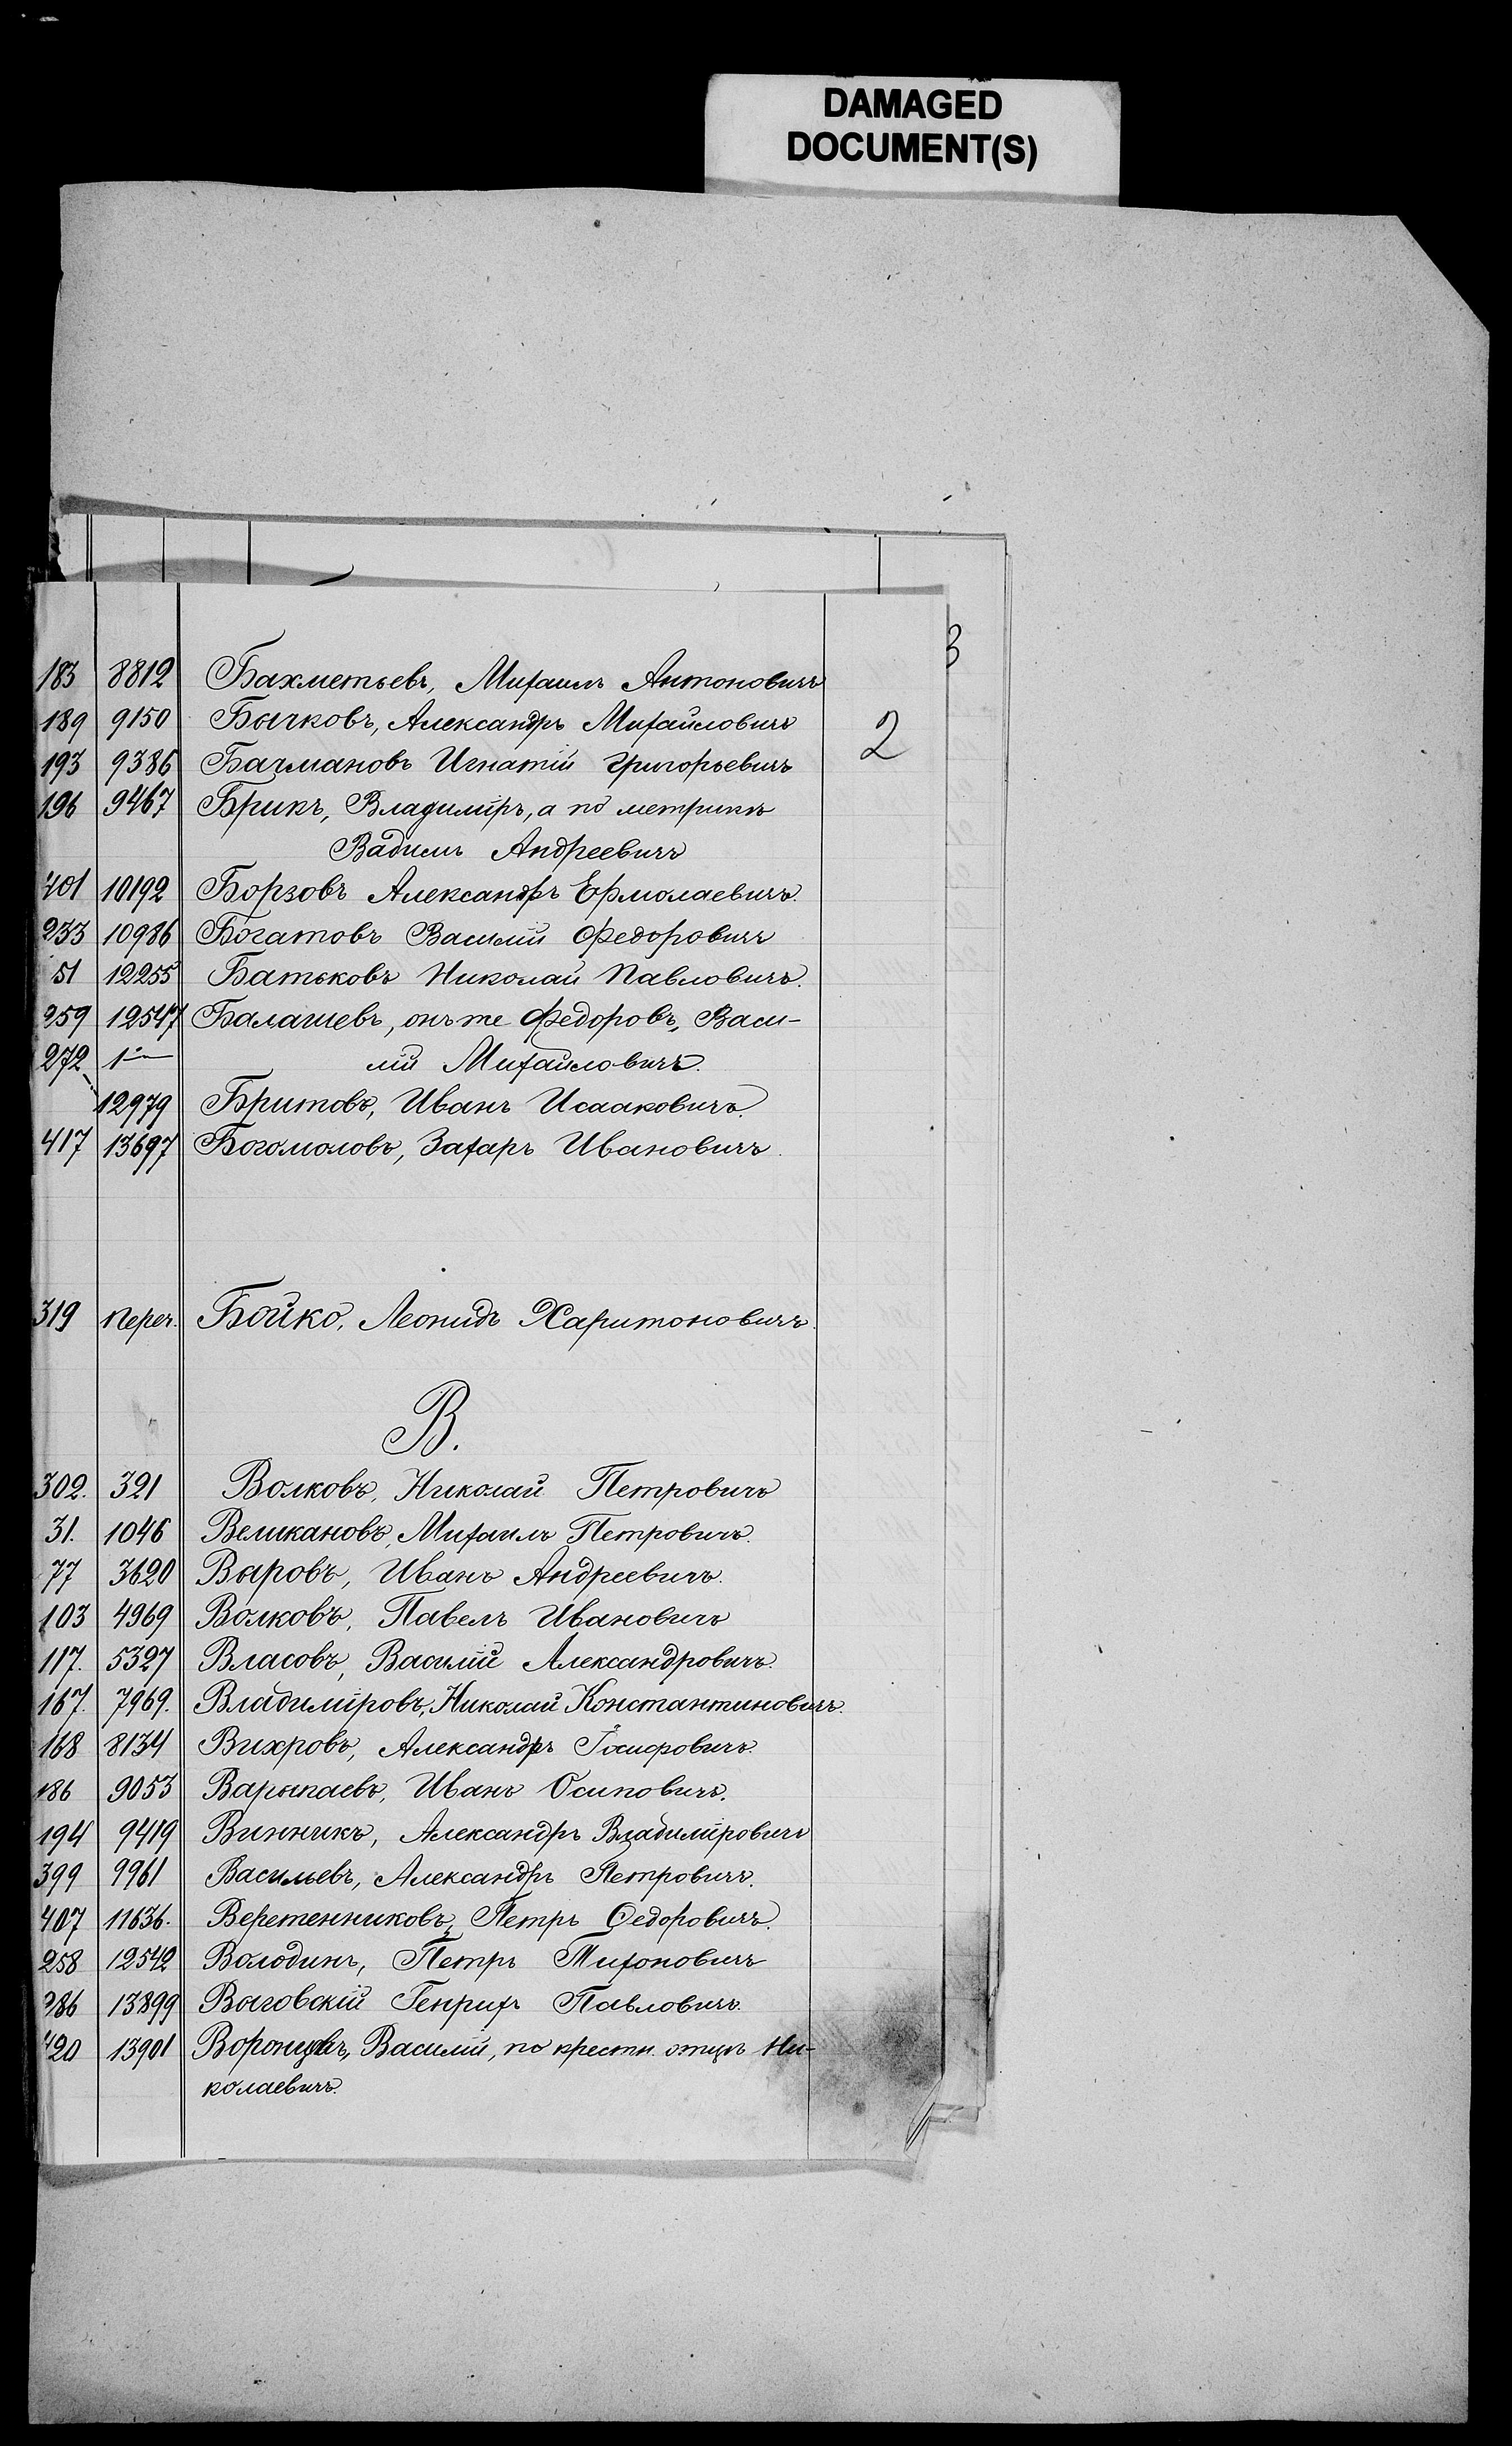 DAMAGED
DOCUMENT(S)
3
183 8812 Бахметьевъ, Михаилъ Антоновичъ
189 9150 Бычковъ, Александръ Михайловичъ
2
193 9386 Бачмановъ Игнатій Григорьевичъ
196 9467 Брикъ, Владиміръ, а по метрикѣ
Вадимъ Андреевичъ
401 10192 Борзовъ Александръ Ермолаевичъ.
233 10986 Богатовъ Василій Федоровичъ
51 12255 Батьковъ Николай Павловичъ.
259 12547 Балашевъ, онъ же Федоровъ, Васи-
272 лій Михайловичъ.
12979 Бритовъ, Иванъ Исааковичъ.
417 13697 Богомоловъ, Захаръ Ивановичъ.
319 Переч. Бойко, Леонидъ Харитоновичъ.
В.
302. 321 Волковъ, Николай Петровичъ
31. 1046 Великановъ, Михаилъ Петровичъ.
77 3620 Выровъ, Иванъ Андреевичъ.
103 4969 Волковъ, Павелъ Ивановичъ
117. 5327 Власовъ, Василій Александровичъ.
167. 7969. Владиміровъ, Николай Константиновичъ.
168 8134 Вихровъ, Александръ Іосифовичъ.
186 9053 Варыпаевъ, Иванъ Осиповичъ.
194 9419 Винникъ, Александръ Владиміровичъ
399 9961 Васильевъ, Александръ Петровичъ.
407 11636. Веретенниковъ, Петръ Ѳедоровичъ.
258 12542 Володинъ, Петръ Тихоновичъ
286 13899 Выговскій Генрихъ Павловичъ.
420 13901 Воронцовъ, Василій, по крестн. отцѣ Ни-
колаевичъ.